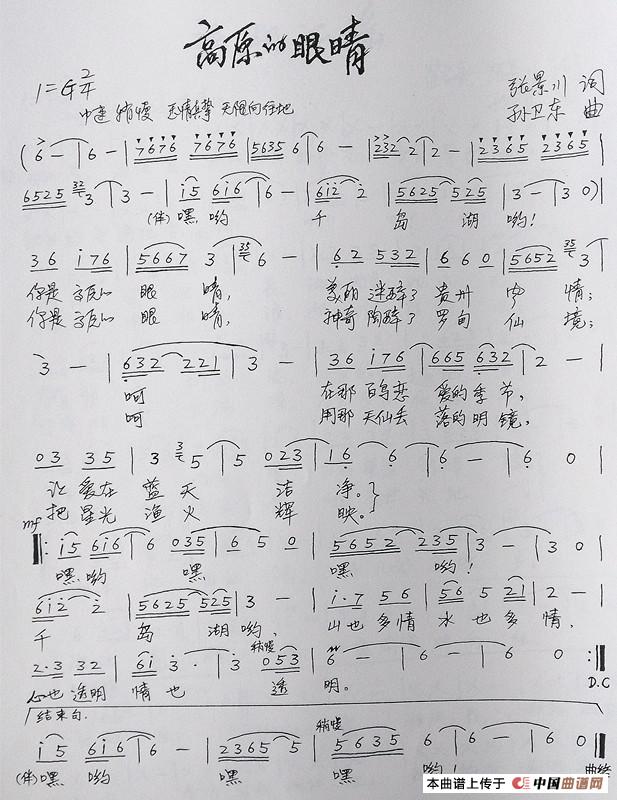 高原的眼睛
1=G 2/4
中速 稍慢
张景川 词
孙卫东 曲
(6 - | 6 - | 7676 7676 | 5635 6 | 6 - | 232 2 | 2 - | 2365 2365 |
6525 3 | 3 - | i5 6i6 | 6 - | 6i2 2 | 5625 525 | 3 - | 3 0)|
(伴)嘿哟 千 岛 湖 哟!
36 i76 | 5667 3 | 6 - | 62 532 | 6 6 0 | 5652 3 |
你是高原的 眼 睛, 美丽 迷醉了 贵州 风 情;
你是高原的 眼 睛, 神奇 陶醉了 罗甸 仙 境;
3 - | 632 221 | 3 - | 36 i76 | 665 632 | 2 - |
呵 在那 百鸟恋 爱的季 节,
呵 用那 天仙丢 落的明 镜,
03 35 | 3 5 | 5 023 | 16 6 | 6 - | 6 0 |
让 爱在 蓝 天 洁 净。
把 星光 渔 火 辉 映。
mf
i5 6i6 | 6 035 | 6 5 0 | 5652 235 | 3 - | 3 0 |
嘿 哟 嘿 嘿 哟!
6i2 2 | 5625 525 | 3 - | i·7 56 | 56 5 21 | 2 - |
千 岛 湖 哟, 山也 多情 水 也 多 情,
稍慢
2·3 32 | 6i 3· | 3 053 | 6 - | 6 - | 6 0 :‖
心也 透明 情 也 透 明。
D.C
结束句.
稍慢
i5 6i6 | 6 - | 2365 5 | 5635 6 | 6 - | 6 0 ‖
(伴)嘿 哟 嘿 嘿 哟!
本曲谱上传于 中国曲谱网